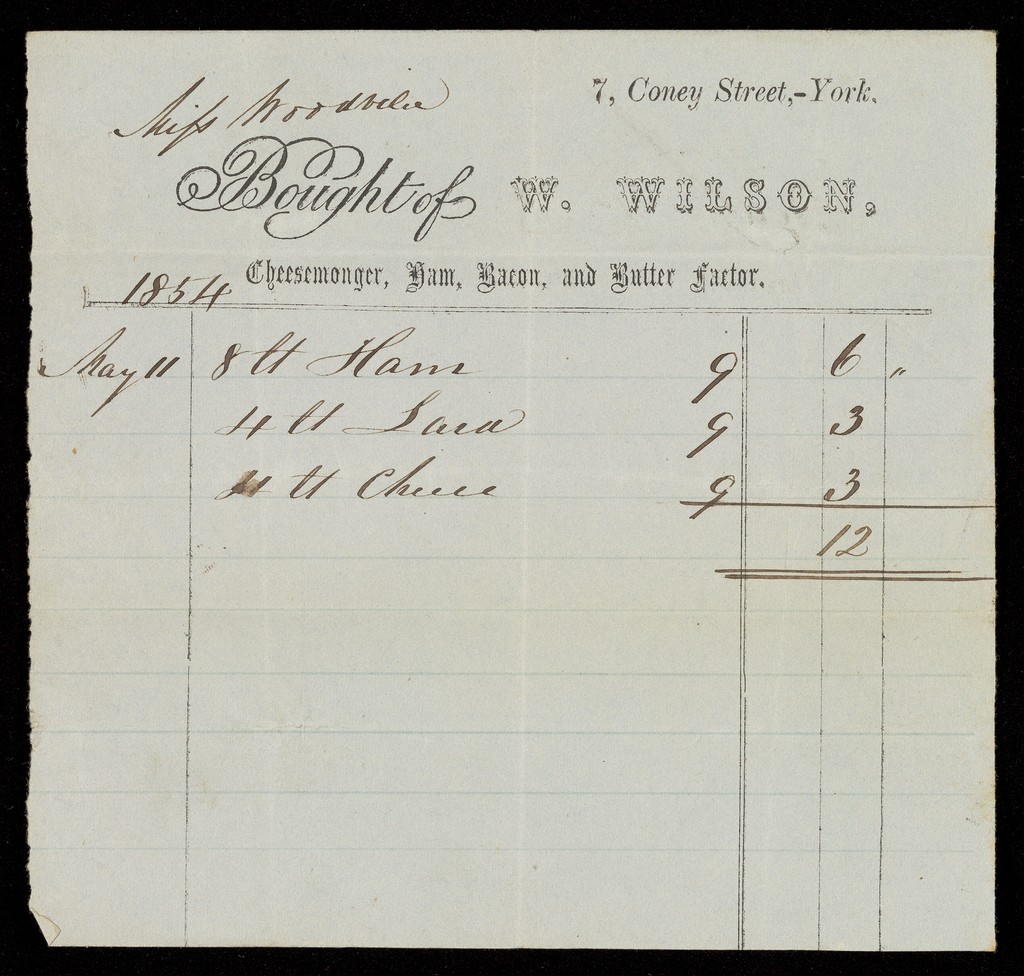 7, Coney Street,-York.
Miss Woodvile
Bought of W. WILSON,
Cheesemonger, Ham, Bacon, and Butter Factor.
1854
May 11 8 lt Ham 9 6 "
4 lt Lard 9 3
4 lt Cheese 9 3
12